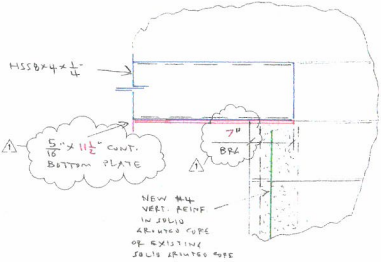 HSS8x4x1/4
5/16" x 11 1/2" CONT.
BOTTOM PLATE
1
7"
BRG
1
NEW #4
VERT. REINF
IN SOLID
GROUTED CORE
OR EXISTING
SOLID GROUTED CORE